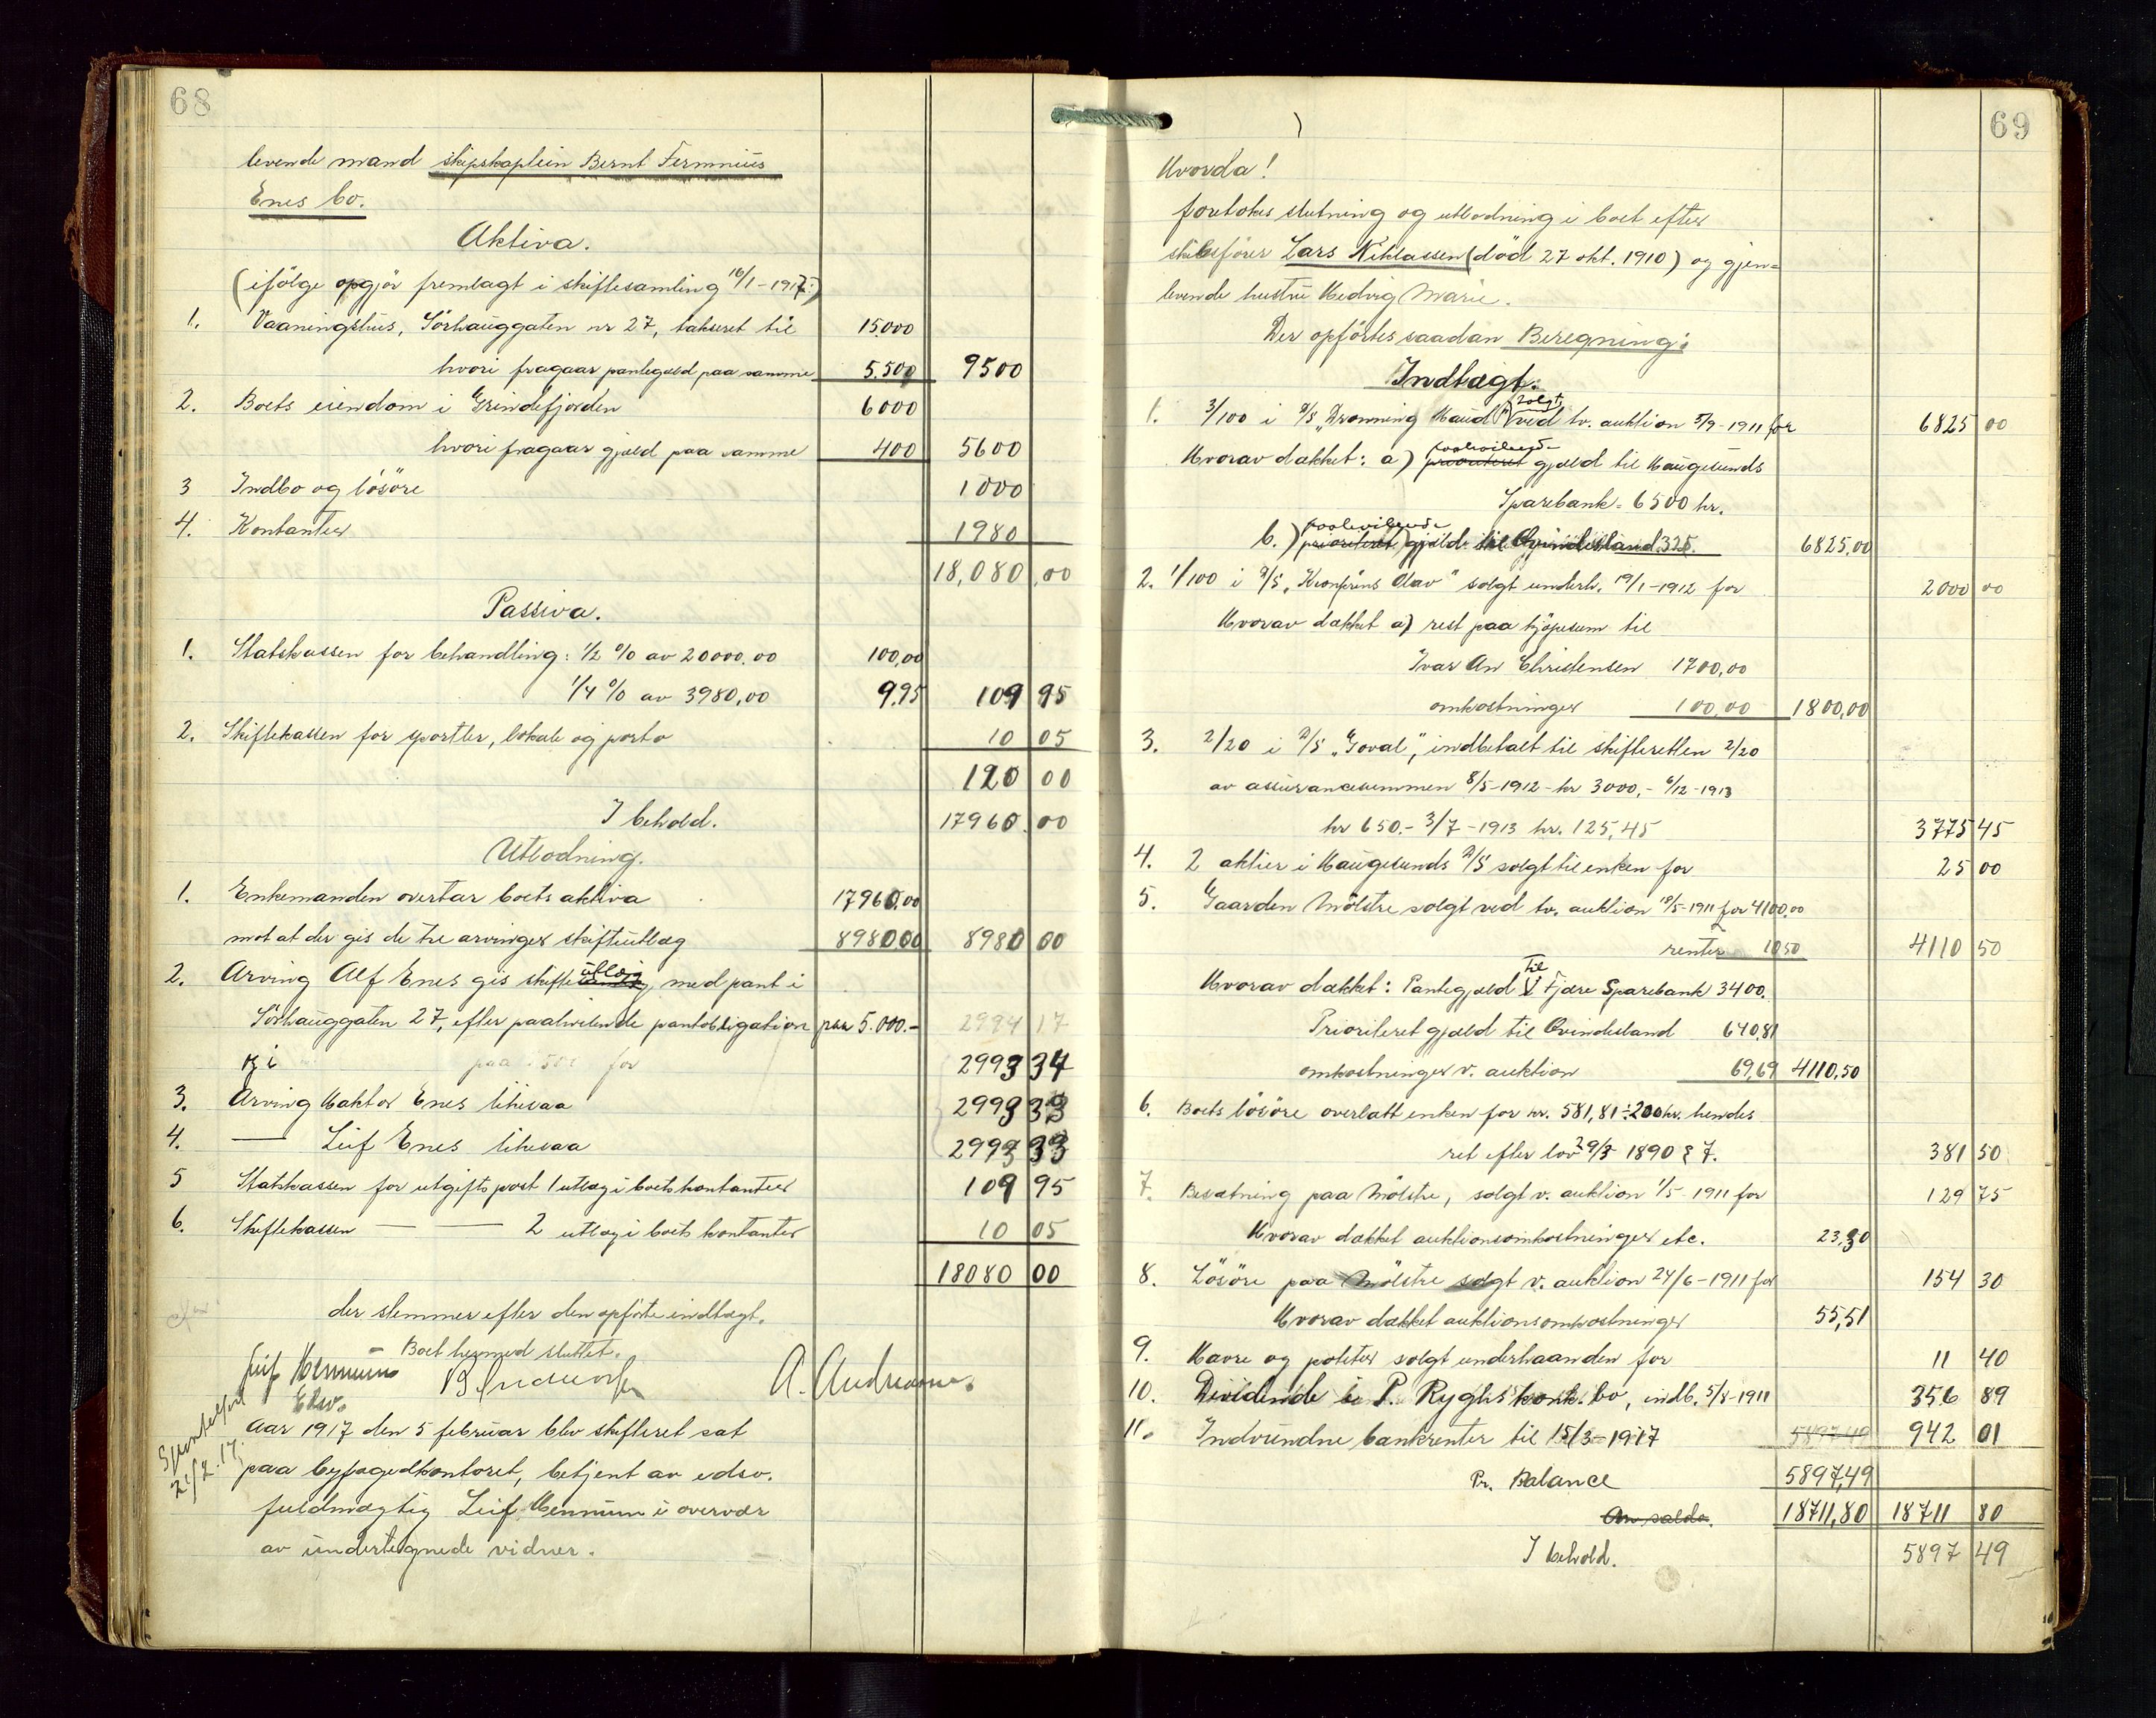 68
levende mand skipskaptein Bernt Ferminius
Enes bo.
Aktiva.
(ifölge opgjör fremlagt i skiftesamling 16/1-1917:)
1. Vaaningshus, Sörhauggaten nr 27, takseret til 15.000
hvori fragaar pantegjæld paa samme 5.500 9500
2. Boets eiendom i Grindefjorden 6000
hvori fragaar gjæld paa samme 400 5600
3 Indbo og lösöre 1000
4. Kontanter 1980
18,080,00
Passiva.
1. Statskassen for behandling: 1/2 % av 20000.00 100,00
1/4 % av 3980,00 9.95 109 95
2. Skiftekassen for sportler, lokale og porto 10 05
120 00
I behold. 17960.00
Utlodning.
1. Enkemanden overtar boets aktiva 17960.00
mot at der gis de tre arvinger skifteutlæg 8980.00 8980 00
2. Arving Alf Enes gis skifteutlæg, med pant i
Sörhauggaten 27, efter paahvilende pantobligation paa 5.000.- 2994 17
paa for 2993 34
3. Arving Haktor Enes likesaa 2993 33
4. — Leif Enes likesaa 2993 33
5 Statskassen for utgiftspost 1 utlæg i boets kontanter 109 95
6. Skiftekassen — — 2 utlæg i boets kontanter 10 05
18080 00
der stemmer efter den opförte indtægt.
- Boet hermed sluttet.
Leif Hennum
Edsv.
A. Andreassen.
Aar 1917 den 5 februar blev skifteret sat
paa byfogedkontoret, betjent av edsv.
fuldmægtig Leif Hennum i overvær
av undertegnede vidner.
69
Hvorda!
foretokes slutning og utlodning i boet efter
skibsförer Lars Niklassen (död 27 okt. 1910) og gjen-
levende hustru Hedvig Marie.
Der opförtes saadan Beregning:
Indtægt.
1. 3/100 i D/S "Dronning Maud" solgt ved tv. auktion 5/9-1911 for 6825 00
Hvorav dækket: a) paahvilende prioriteret gjæld til Haugesunds
Sparebank. 6500 kr.
b.) paahvilende prioriteret gjæld til Qvindesland 325. 6825,00
2. 1/100 i D/S "Kronprins Olav" solgt underh. 19/1-1912 for 2000 00
Hvorav dækket a) rest paa kjöpesum til
Ivar An Christensen 1700,00
omkostninger 100,00 1800,00
3. 2/20 i D/S "Goval", indbetalt til skifteretten 2/20
av assurancesummen 8/5-1912 - kr 3000,- 6/12-1913
kr 650.- 3/7-1913 kr. 125,45 3775 45
4. 2 aktier i Haugesunds D/S solgt til enken for 25 00
5. Gaarden Mölstre solgt ved tv. auktion 18/5-1911 for 4100,00
renter 10 50 4110 50
Hvorav dækket: Pantegjæld til Fjære Sparebank 3400.
Prioriteret gjæld til Qvindesland 640,81
omkostninger v. auktion 69,69 4110,50
6. Boets lösöre overlatt enken for kr. 581,81 ÷ 200 kr. hendes
ret efter lov 29/3 1890 § 7. 381 50
7. Besætning paa Mölstre, solgt v. auktion 1/5-1911 for 129 75
Hvorav dækket auktionsomkostninger etc. 23,30
8. Lösöre paa Mölstre solgt v. auktion 24/6-1911 for 154 30
Hvorav dækket auktionsomkostninger 55,51
9. Havre og poteter solgt underhaanden for 11 40
10. Dividende i P. Ryghs konk. bo, indb. 5/8-1911 356 89
11. Indvundne bankrenter til 15/3-1917 5897,49 942 01
Pr. Balance 5897,49
An saldo. 18711,80 18711 80
I behold. 5897 49